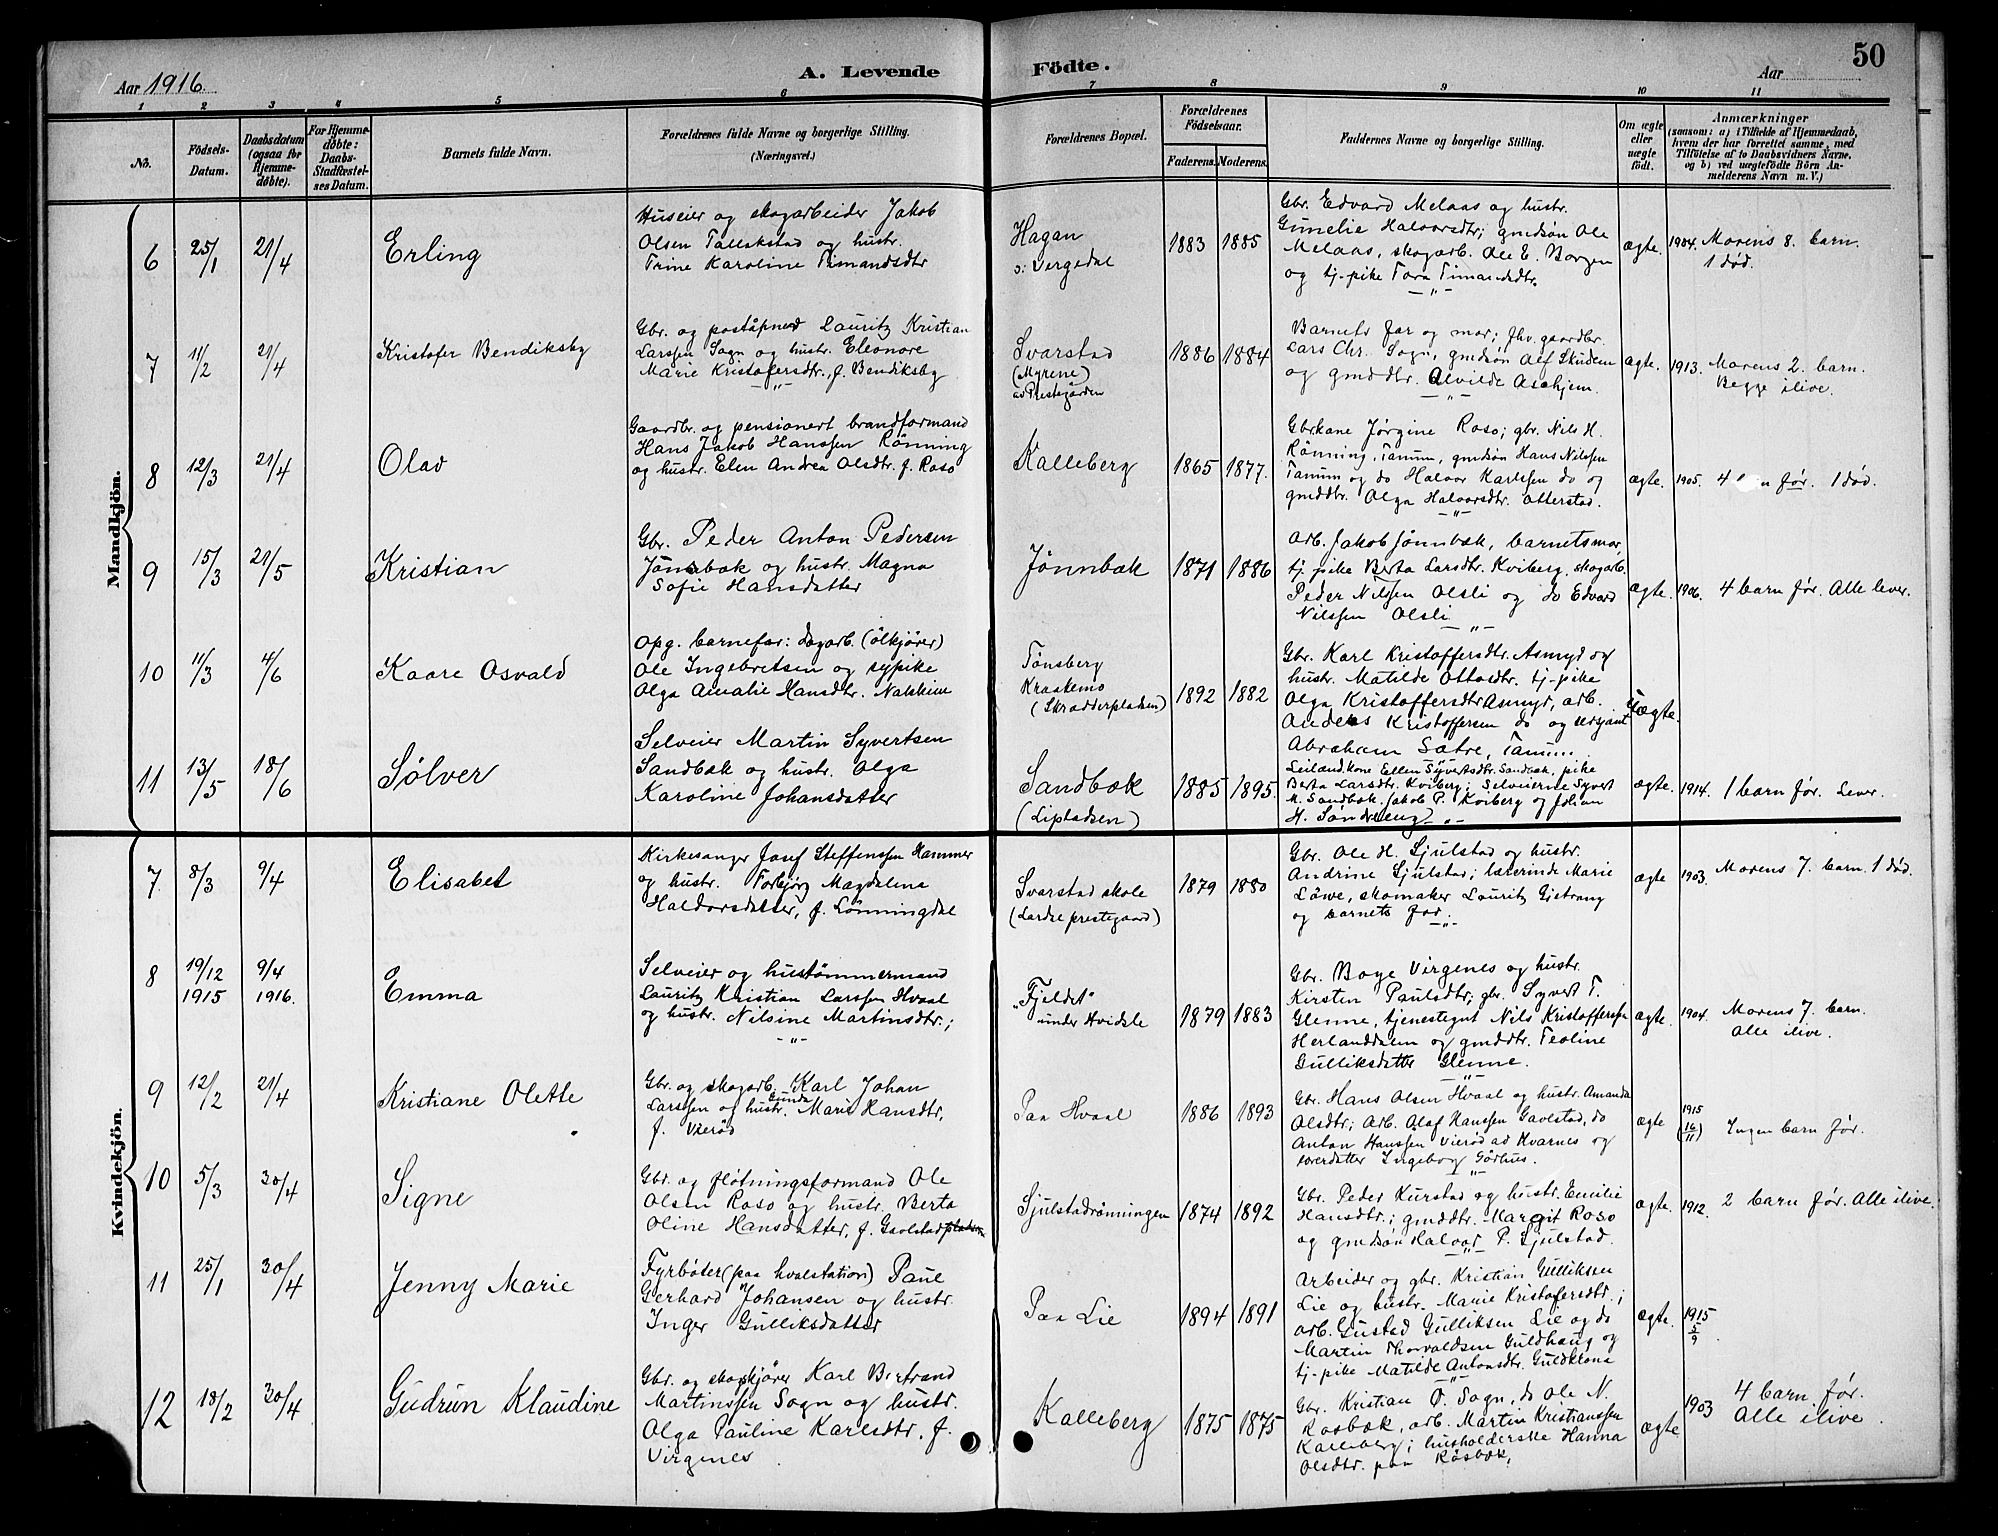 50
Aar 1916.
A. Levende Födte.
Aar
1 2 3 4 5 6 7 8 9 10 11
No.
Födsels-
Datum.
Daabsdatum
(ogsaa for
Hjemme-
døbte).
For Hjemme-
døbte:
Daabs-
Stadfæstel-
ses Datum.
Barnets fulde Navn.
Forældrenes fulde Navne og borgerlige Stilling.
(Næringsvei.)
Forældrenes Bopæl.
Forældrenes
Födselsaar.
Faderens. Moderens.
Faddernes Navne og borgerlige Stilling.
Om ægte
eller
uægte
født.
Anmærkninger
(saasom: a) i Tilfælde af Hjemmedaab,
hvem der har forrettet samme, med
Tilføielse af to Daabsvidners Navne,
og b) ved uægtefödte Börn An-
melderens Navn m. V.)
Mandkjön.
6
25/1
21/4
Erling
Huseier og skogarbeider Jakob
Olsen Tallakstad og hustr.
Trine Karoline Timandsdtr
Hagan
s. Vergedal
1883
1885
Gbr. Edvard Melaas og hustr.
Gunelie Halvorsdtr; gmdsøn Ole
Melaas, skogarb. Ole E. Borgen
og tj-pike Tora Timandsdtr.
ægte.
1904. Morens 8. barn.
1 død.
7
11/2
21/4
Kristofer Bendiksby
Gbr. og poståpner Lauritz Kristian
Larssen Sogn og hustr. Eleonore
Marie Kristofersdtr., f. Bendiksby
Svarstad
(Myrene)
av Prestegården
1886
1884
Barnets far og mor; fhv. gaardbr.
Lars Chr. Sogn, gmdsøn Alf Skudem
og gmddtr. Alvilde Aschjem.
ægte.
1913. Morens 2. barn.
Begge ilive.
8
12/3
21/4
Olav
Gaardbr. og pensionert brandformand
Hans Jakob Hanssen Rønning
og hustr. Elen Andrea Olsdtr. f. Roso
Kalleberg
1865
1877.
Gbrkone Jørgine Roso; gbr. Nils H.
Rønning, Tanum, gmdsøn Hans Nilssen
Tanum og do Halvor Karlssen do og
gmddtr. Olga Halvorsdtr. Otterstad.
ægte.
1905. 4 før. 1 død.
9
15/3
21/5
Kristian
Gbr. Peder Anton Pedersen
Jønsbæk og hustr. Magna
Sofie Hansdatter
Jønnbæk
1871
1886
Arb. Jakob Jønnbæk, barnets mor,
tj. pike Berta Larsdtr. Kviberg, skogarb.
Peder Nilssen Olsli og do Edvard
Nilssen Olsli
ægte.
1906. 4 barn før. Alle lever.
10
11/3
4/6
Kaare Osvald
Opg. barnefar: dagarb. (ølkjører)
Ole Ingebretsen og sypike
Olga Amalie Hansdtr. Nakkim
Tønsberg
Kraakemo
(Skrædderpladsen)
1892
1882
Gbr. Karl Kristoffersdtr. Asmyd og
hustr. Matilde Ottosdtr. tj-pike
Olga Kristoffersdtr Asmyr, arb.
Anders Kristoffersen do og sersjant
Abraham Sætre, Tanum.
uægte.
11
13/5
18/6
Sølver
Selveier Martin Syvertsen
Sandbæk og hustr. Olga
Karoline Johansdatter
Sandbæk
(Lipladsen)
1885
1895.
Leilandkone Ellen Syvertsdtr. Sandbæk, pike
Berta Larsdtr. Kviberg; Selveierne Syvert
M. Sandbæk, Jakob P. Kviberg og Johan
H. Søndreeng
ægte.
1914. 1 barn før. Lever.
Kvindekjön.
7
8/3
9/4
Elisabet
Kirkesanger Josef Steffenssen Hammer
og hustr. Torbjørg Magdalena
Haldorsdatter, f. Lønningdal
Svarstad skole
(Lardal prestegaard)
1879
1880
Gbr. Ole H. Sjulstad og hustr.
Andrine Sjulstad; lærerinde Marie
Löwe, skomaker Lauritz Gjetrang
og barnets far.
ægte
1903. Morens 7. barn. 1 død.
8
19/12
1915
9/4
1916.
Emma
Selveier og hustømmermand
Lauritz Kristian Larssen Hvaal
og hustr. Nilsine Martinsdtr.;
"Fjeldet"
under Hvidsle
1879
1883
Gbr. Boye Virgenes og hustr.
Kirsten Paulsdtr; gbr. Syvert T.
Glenne, tjenestegut Nils Kristoffersen
Herlanddalen og gmddtr. Teoline
Gulliksdatter Glenne.
ægte.
1904. Morens 7. barn.
Alle ilive.
9
12/2
21/4
Kristiane Olette
Gbr. og skogarb. Karl Johan
Larssen og hustr. Gunda Marie Hansdtr,
f. Vierød
Paa Hvaal
1886
1893
Gbr. Hans Olsen Hvaal og hustr. Amanda
Olsdtr; Arb. Olaf Hanssen Gavlstad, do
Anton Hanssen Vierød av Kvarnes og
loverdatter Ingeborg Gårhus.
ægte
1915
(16/11) Ingen barn før.
10
5/3
30/4
Signe
Gbr. og fløtningsformand Ole
Olsen Roso og hustr. Berta
Oline Hansdatter, f. Gavlstadpladsen
Sjulstadrønningen
1874
1892
Gbr. Peder Kurstad og hustr. Emilie
Hansdtr.; gmddtr. Margit Roso
og gmdsøn Halvor P. Sjulstad.
ægte.
1912. 2 barn før. Alle ilive.
11
25/1
30/4
Jenny Marie
Fyrbøter (paa hvalstation) Paul
Gerhard Johansen og hustr.
Inger Gulliksdatter
Paa Lie
1894
1891
Arbeider og gbr. Kristian Gulliksen
Lie og hustr. Marie Kristofersdtr;
arb. Gustad Gulliksen Lie og do
Martin Thorvaldsen Guldhaug og
tj-pike Matilde Antonsdtr. Guldklona
ægte.
1915
5/9
12
18/2
30/4
Gudrun Klaudine
Gbr. og skogskjører Karl Bertrand
Martinssen Sogn og hustr.
Olga Pauline Karlsdtr, f.
Virgenes
Kalleberg
1875
1875
Gbr. Kristian O. Sogn, do Ole N.
Rosbæk, arb. Martin Kristianssen
Kalleberg; husholderske Hanna
Olsdtr. paa Råsbæk.
ægte
1903 4 barn før.
Alle ilive.